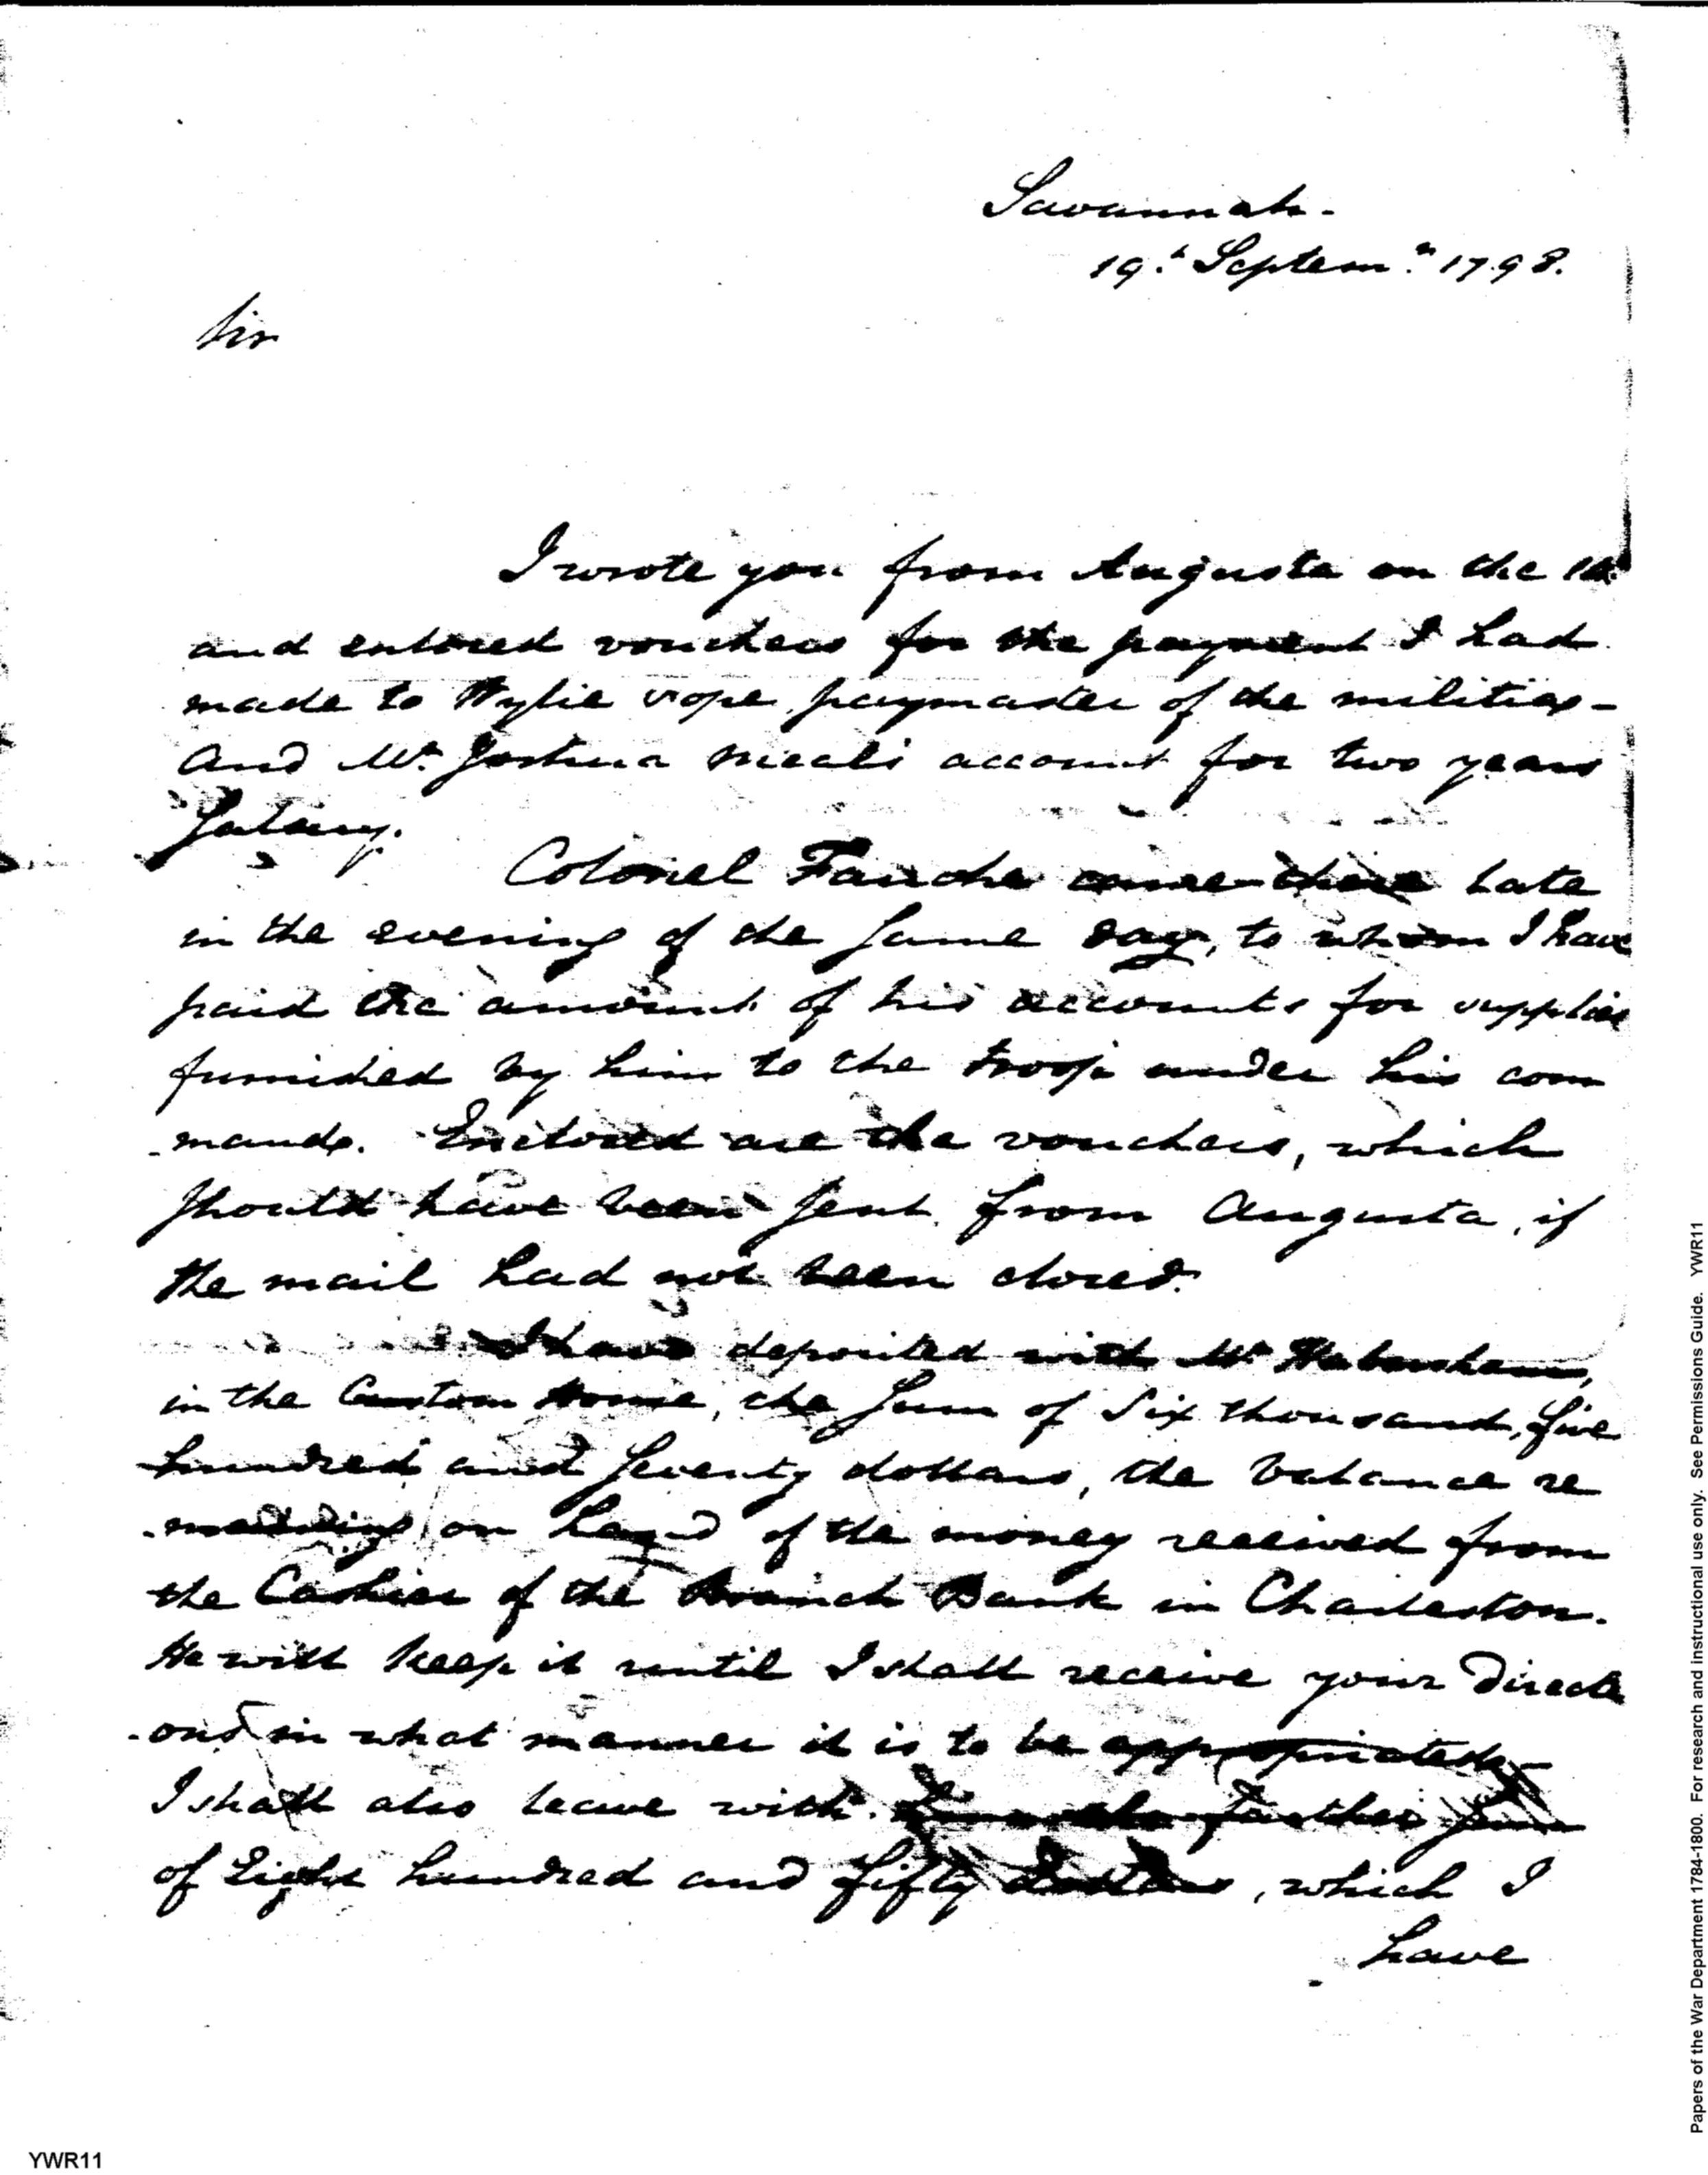 Savannah.
19.h Septem.r 1798.
Sir
I wrote you from Augusta on the
and enclosed vouchers for the payment I had
made to Wylie Pope paymaster of the militia -
And Mr. Joshua Meals account for two years
Salary.
Colonel Fauche came there late
in the evening of the same day, to whom I have
paid the amount of his accounts for supplies
furnished by him to the troop under his com
-mand. Enclosed are the vouchers, which
should have been sent from Augusta, if
the mail had not been closed.
I have deposited with Mr Habersham,
in the Custom House, the sum of Six thousand, five
hundred and seventy dollars, the balance re
-maining on hand of the money received from
the Cashier of the Branch Bank in Charleston.
He will keep it until I shall receive your Directi
-ons in what manner it is to be appropriated -
I shall also leave with farther sum
of Eight hundred and fifty dollars, which I
have
YWR11
Papers of the War Department 1784-1800. For research and instructional use only. See Permissions Guide. YWR11